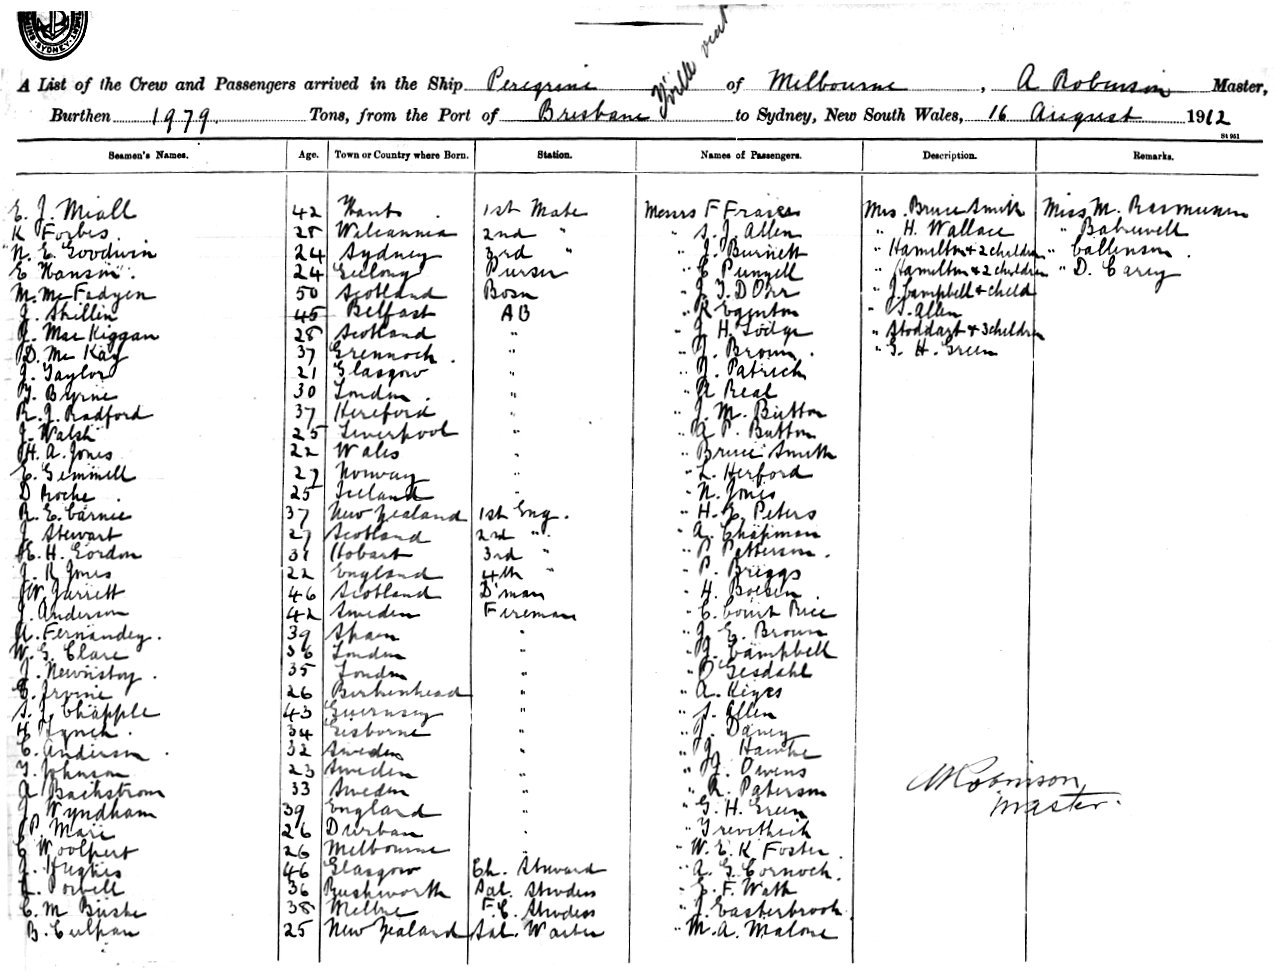 SYDNEY
A List of the Crew and Passengers arrived in the Ship Peregrine of Melbourne, A Robinson Master,
Burthen 1979 Tons, from the Port of Brisbane T'ville to Sydney, New South Wales, 16 August 1912
St 951
Seamen's Names. Age. Town or Country where Born. Station. Names of Passengers. Description. Remarks.
E. J. Miall 42 Hants. 1st Mate Messrs F Fraser Mrs. Bruce Smith Miss M. Rasmussen
K Forbes 28 Wilcannia 2nd " " S. J. Allen " H. Wallace "
N. E. Goodwin 24 Sydney 3rd " " J. Burnett " Hamilton & 2 children " Callinson.
E Hanson. 24 Geelong Purser " C Punzell " Hamilton & 2 children " D. Carey
M. Mc Fadyen 50 Scotland Bosn " J. T. D Orr " J. Campbell & child
J. Skillin 45 Belfast AB " R Eginton " S. Allen
J. Mac Kiggan 28 Scotland " " J. H. Lodge " Stoddart & 3 children
D. Mc Kay 37 Grennock. " " J. Brown. " G. H. Green
J. Taylor 21 Glasgow " " J. Patrick
T. Byrne 30 London. " " R Real
R. J. Radford 37 Hereford " " J. M. Button
J. Walsh 25 Liverpool " " A P. Button
H. A. Jones 22 Wales " " Bruce Smith
E. Gemmell 27 Norway " " L. Herford
D Roche. 25 Ireland " " N. Jones
R. E. Carnie 37 New Zealand 1st Eng. " H. J. Peters
J Stewart 27 Scotland 2nd " " A. Chapman
H. Gordon 31 Hobart 3rd " " P Petterson.
J. R Jones 22 England 4th " " P. Briggs
W. Jarrett 46 Scotland D'man " H. Boesen.
J. Anderson 42 Sweden Fireman " C. Court Rice
A. Fernandez. 39 Spain " " J. E. Brown
W. G. Clare 36 London " " J. Campbell
J. 35 London " " O Gesdahl
G. Irvine 26 Birkenhead " " A. Keyes
S. J. Chapple 43 Guernsey " " S. Allen
H Lynch. 34 Gisborne " " J. Daney
C. Anderson. 32 Sweden " " J. Hawke
T. Johnson 23 Sweden " " J. Owens
A Backstrom 33 Sweden " " R. Paterson
J Wyndham 39 England " " G. H. Green
P. Mari 26 Durban " " Trevithick
C Woolpert 26 Melbourne " " W. E. K Foster.
J. Hughes 46 Glasgow Ch. Steward " A. G. Cornock.
L. Powell 36 Rushworth Sal. Stwdess " E. F. Wath
C. M Bushe 38 Melbne F. C. Stwdess " J. Easterbrook
B. Culpan 25 New Zealand Sal. Waiter " M. A. Malone
A Robinson
Master.